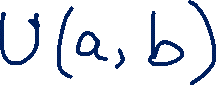 U(a, b)